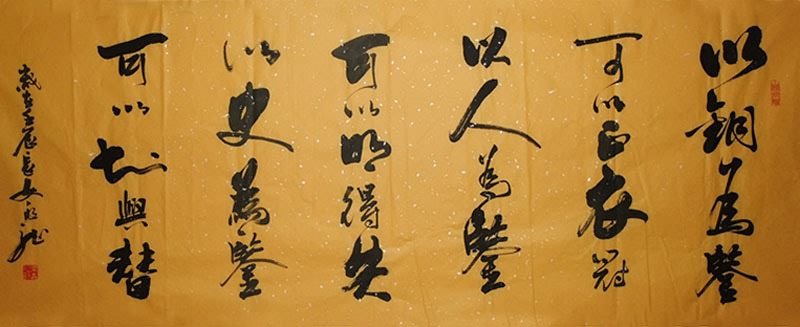 以銅為鑒
可以正衣冠
以人為鑒
可以明得失
以史為鑒
可以知興替
歲在壬辰年